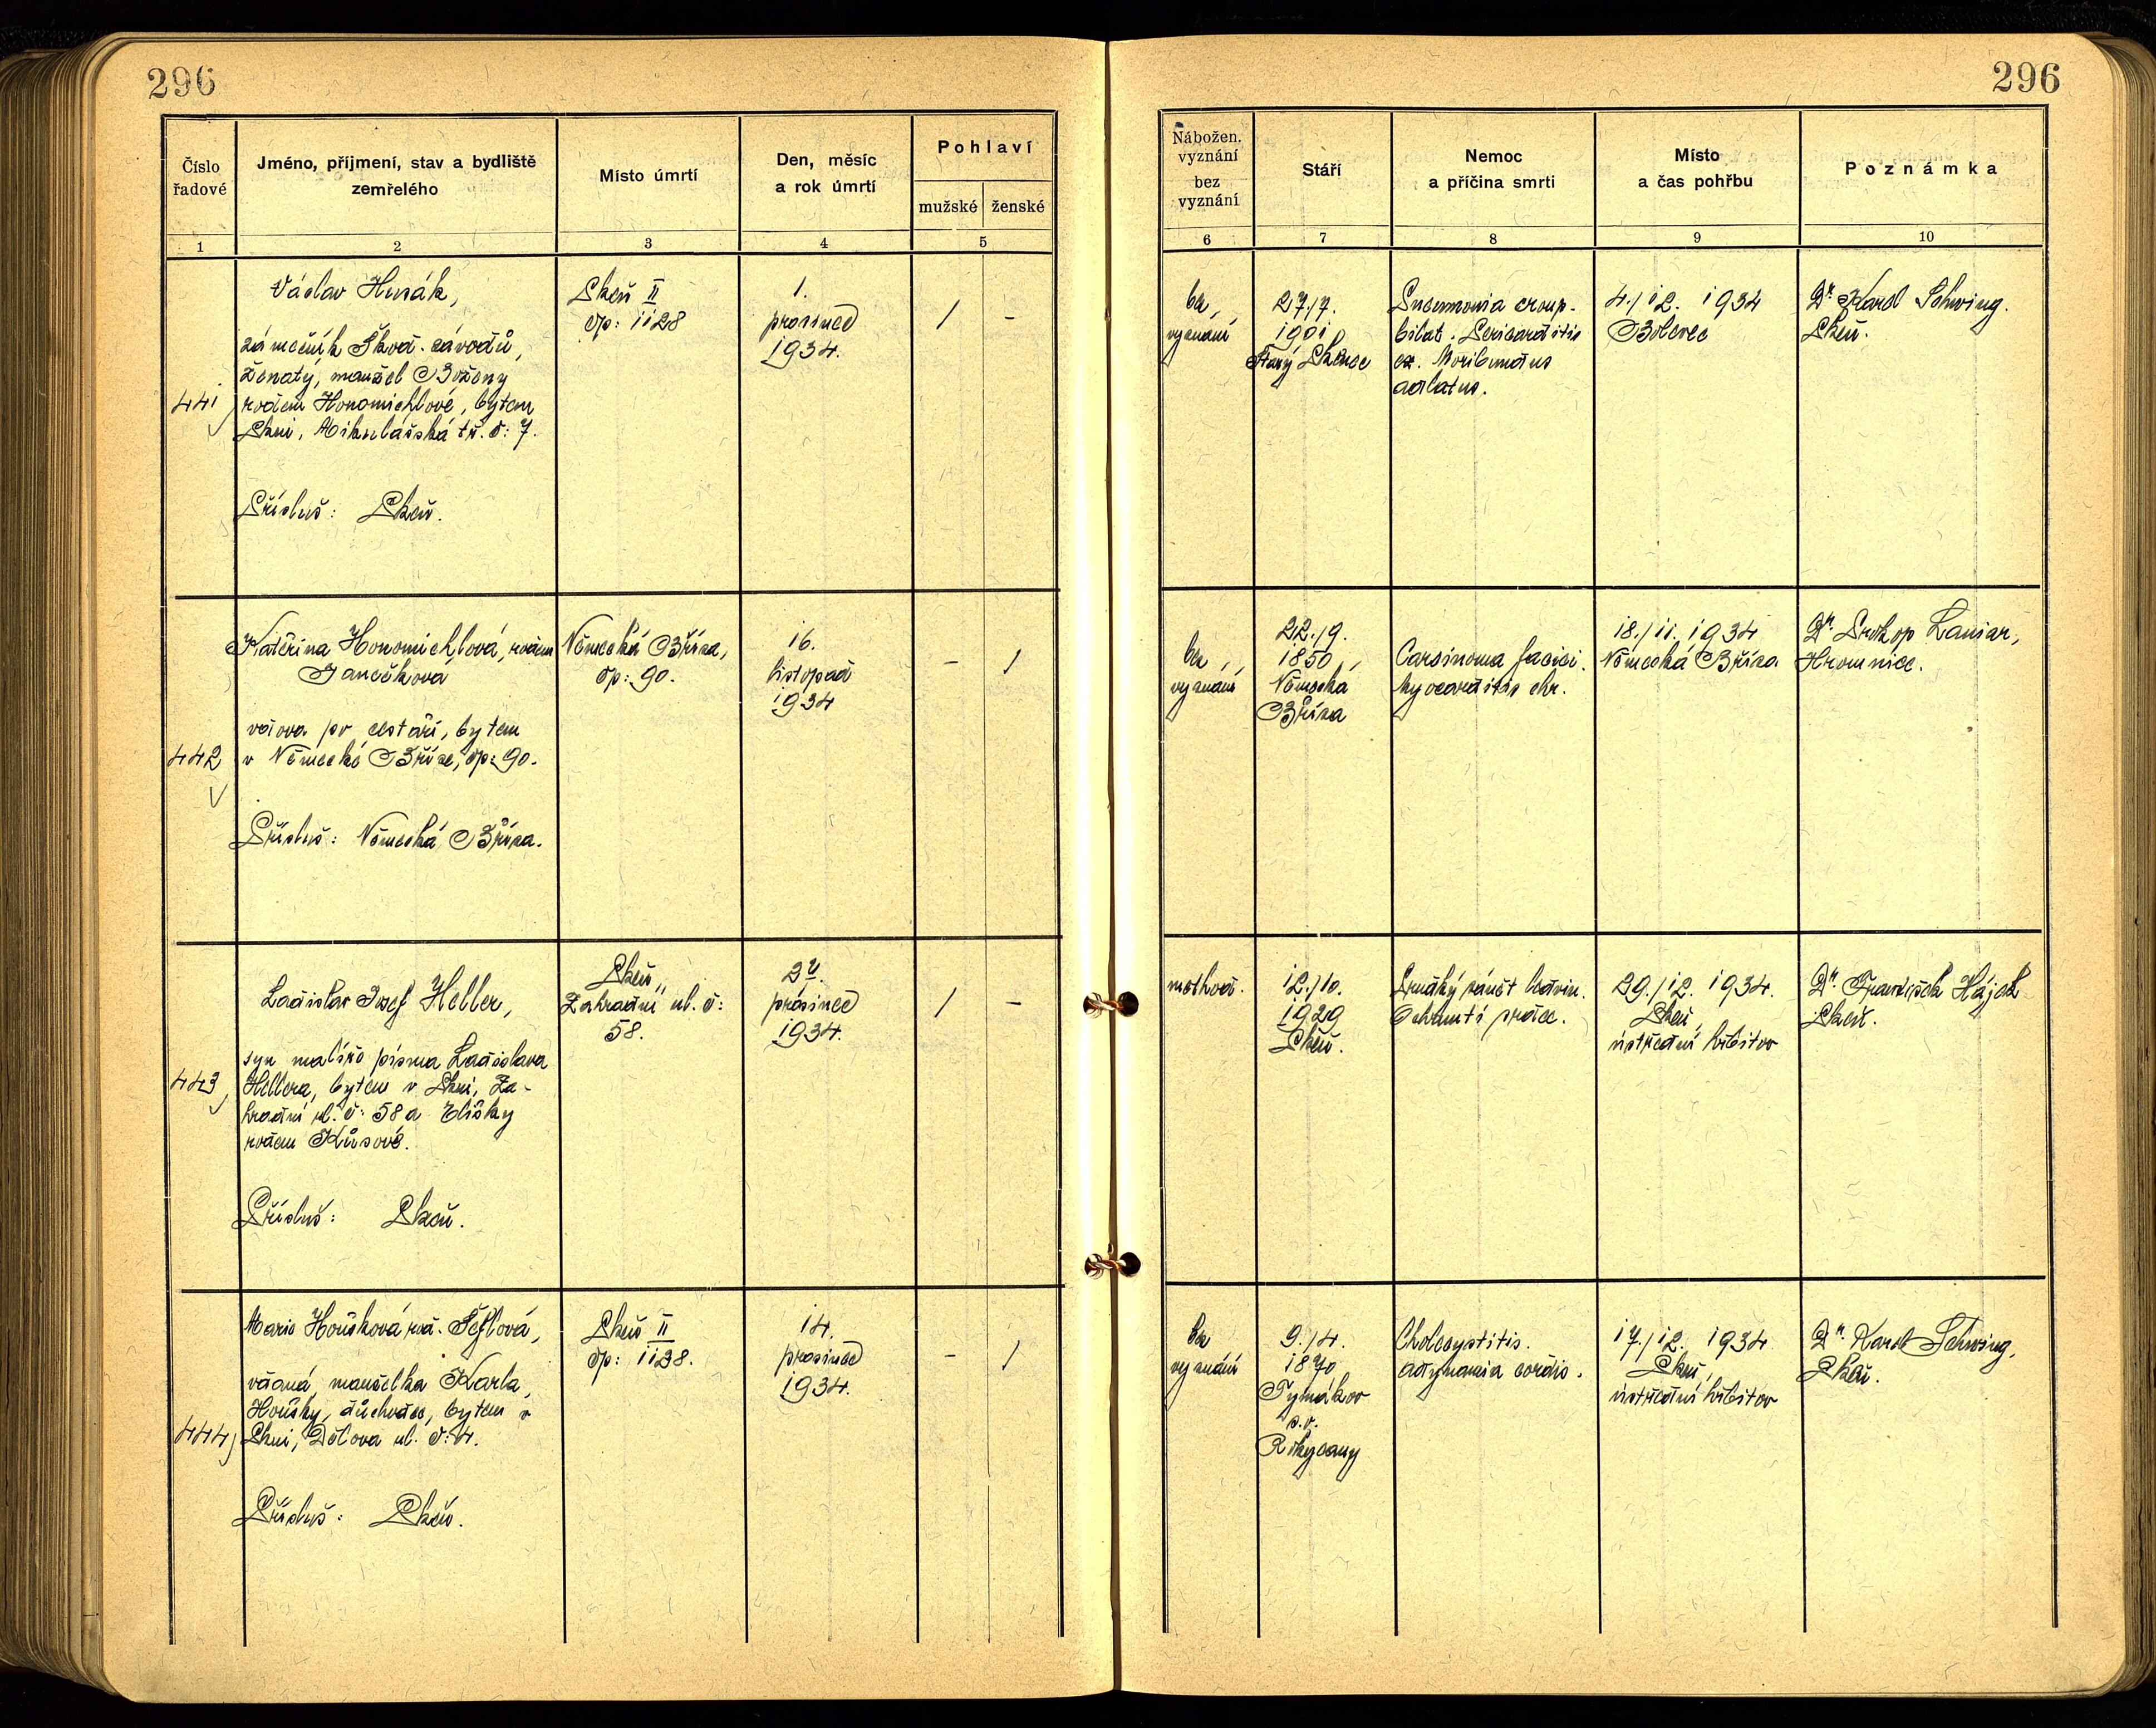 296
296
Číslo
řadové
Jméno, příjmení, stav a bydliště
zemřelého
Místo úmrtí
Den, měsíc
a rok úmrtí
Pohlaví
mužské
ženské
1
2
3
4
5
Nábožen.
vyznání
bez
vyznání
Stáří
Nemoc
a příčina smrti
Místo
a čas pohřbu
Poznámka
6
7
8
9
10
441
Václav Husák,
zámečník Škod. závodů,
ženatý, manžel Boženy
rodem Honomichlové, bytem
Plzni, Mikulášská tř. č: 7.
Přísluš: Plzeň.
Plzeň II
čp: 1128
1.
prosinec
1934.
/
-
bez
vyznání
27./7.
1901
Starý Plzenec
Pneumonia croup.
bilat. Pericarditis
ex. Moribundus
adlatus.
4./12. 1934
Bolevec
Dr. Karel Schwing.
Plzeň.
442
Kateřina Honomichlová, rodem
Janečková
vdova po cestáři, bytem
v Německé Bříze, čp: 90.
Přísluš: Německá Bříza.
Německá Bříza,
čp: 90.
16.
listopad
1934
-
/
bez
vyznání
22./9.
1850,
Německá
Bříza
Carcinoma faciei.
Myocarditis chr.
18./11. 1934
Německá Bříza
Dr. Prokop
Hromnice.
443
Ladislav Josef Heller,
syn malíře písma Ladislava
Hellera, bytem v Plzni, Za-
hradní ul. č: 58 a Elišky
rodem Kůsové.
Přísluš: Plzeň.
Plzeň,
Zahradní ul. č:
58.
prosinec
1934.
/
-
12./10.
1929
Plzeň.
Prudký zánět ledvin.
Ochrnutí srdce.
29./12. 1934.
Plzeň,
ústřední hřbitov
Dr. František Hájek
Plzeň.
444
Marie Houšková rod. Šeflová,
vdaná, manželka Karla
Houšky, důchodce, bytem v
Plzni, ul. č: 4.
Přísluš: Plzeň.
Plzeň II
čp: 1128.
14.
prosinec
1934.
-
/
bez
vyznání
9./4.
1870
Tymákov
p.o.
Rokycany
Cholecystitis.
Adynamia cordis.
17./12. 1934
Plzeň,
ústřední hřbitov
Dr. Karel Schwing,
Plzeň.